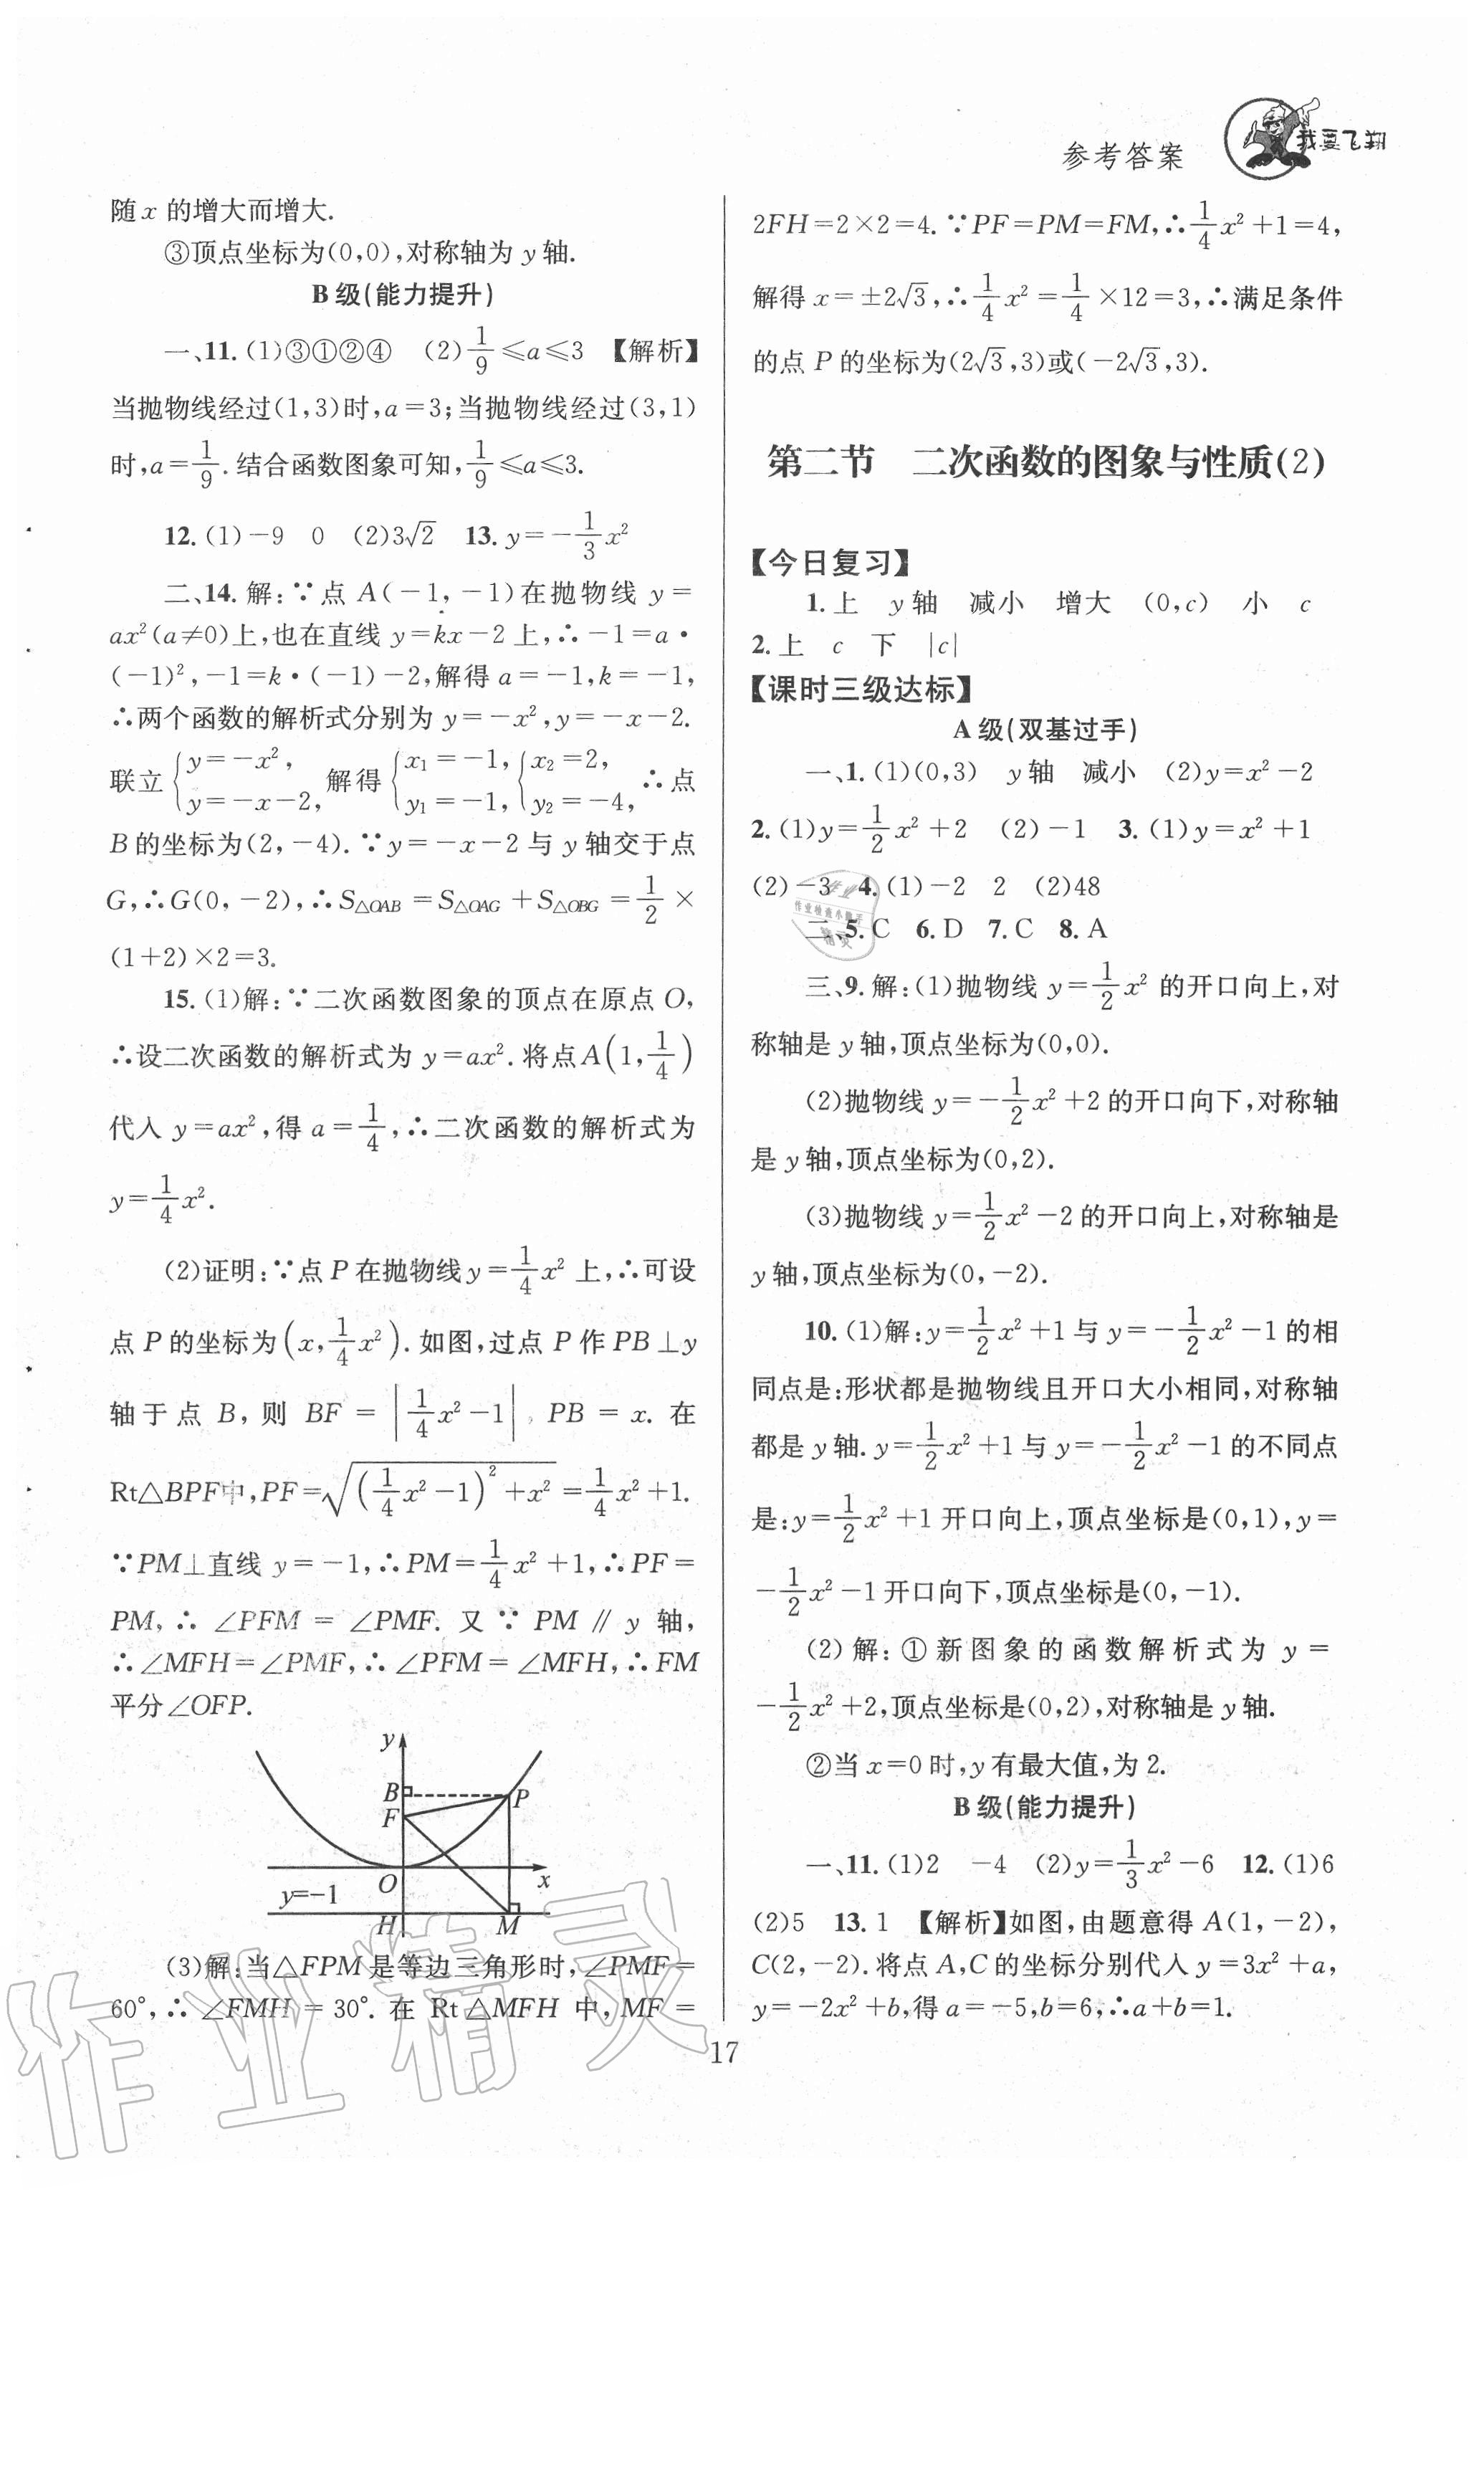 参考答案
我要飞翔
随 x 的增大而增大.
③顶点坐标为(0,0),对称轴为 y 轴.
B 级(能力提升)
一、11. (1)③①②④ (2) 1/9 ≤a≤3 【解析】
当抛物线经过(1,3)时,a=3;当抛物线经过(3,1)
时,a=1/9.结合函数图象可知,1/9≤a≤3.
12. (1)-9 0 (2)3√2 13. y=-1/3 x²
二、14. 解:∵点 A(-1,-1)在抛物线 y=
ax²(a≠0)上,也在直线 y=kx-2 上,∴-1=a·
(-1)²,-1=k·(-1)-2,解得 a=-1,k=-1,
∴两个函数的解析式分别为 y=-x²,y=-x-2.
联立{y=-x², y=-x-2, 解得{x₁=-1, y₁=-1, {x₂=2, y₂=-4, ∴点
B 的坐标为(2,-4). ∵y=-x-2 与 y 轴交于点
G,∴G(0,-2),∴S△OAB=S△OAG+S△OBG=1/2×
(1+2)×2=3.
15. (1)解:∵二次函数图象的顶点在原点 O,
∴设二次函数的解析式为 y=ax².将点A(1,1/4)
代入 y=ax²,得 a=1/4,∴二次函数的解析式为
y=1/4 x².
(2)证明:∵点 P 在抛物线y=1/4 x² 上,∴可设
点 P 的坐标为(x,1/4 x²).如图,过点 P 作 PB⊥y
轴于点 B,则 BF=|1/4 x²-1|,PB=x. 在
Rt△BPF中,PF=√((1/4 x²-1)²+x²)=1/4 x²+1.
∵PM⊥直线 y=-1,∴PM=1/4 x²+1,∴PF=
PM,∴∠PFM=∠PMF. 又∵PM∥y 轴,
∴∠MFH=∠PMF,∴∠PFM=∠MFH,∴FM
平分∠OFP.
y
B
P
F
O
x
y=-1
H
M
(3)解:当△FPM是等边三角形时,∠PMF=
60°,∴∠FMH=30°. 在 Rt△MFH 中,MF=
2FH=2×2=4. ∵PF=PM=FM,∴1/4 x²+1=4,
解得 x=±2√3,∴1/4 x²=1/4×12=3,∴满足条件
的点 P 的坐标为(2√3,3)或(-2√3,3).
第二节 二次函数的图象与性质(2)
【今日复习】
1. 上 y 轴 减小 增大 (0,c) 小 c
2. 上 c 下 |c|
【课时三级达标】
A 级(双基过手)
一、1. (1)(0,3) y 轴 减小 (2)y=x²-2
2. (1)y=1/2 x²+2 (2)-1 3. (1)y=x²+1
(2)-3 4. (1)-2 2 (2)48
二、5. C 6. D 7. C 8. A
三、9. 解:(1)抛物线 y=1/2 x² 的开口向上,对
称轴是 y 轴,顶点坐标为(0,0).
(2)抛物线 y=-1/2 x²+2 的开口向下,对称轴
是 y 轴,顶点坐标为(0,2).
(3)抛物线 y=1/2 x²-2 的开口向上,对称轴是
y 轴,顶点坐标为(0,-2).
10. (1)解:y=1/2 x²+1 与 y=-1/2 x²-1 的相
同点是:形状都是抛物线且开口大小相同,对称轴
都是 y 轴. y=1/2 x²+1 与 y=-1/2 x²-1 的不同点
是:y=1/2 x²+1 开口向上,顶点坐标是(0,1),y=
-1/2 x²-1 开口向下,顶点坐标是(0,-1).
(2)解:①新图象的函数解析式为 y=
-1/2 x²+2,顶点坐标是(0,2),对称轴是 y 轴.
②当 x=0 时,y 有最大值,为 2.
B 级(能力提升)
一、11. (1)2 -4 (2)y=1/3 x²-6 12. (1)6
(2)5 13. 1 【解析】如图,由题意得 A(1,-2),
C(2,-2).将点 A,C 的坐标分别代入 y=3x²+a,
y=-2x²+b,得 a=-5,b=6,∴a+b=1.
17
作业精灵